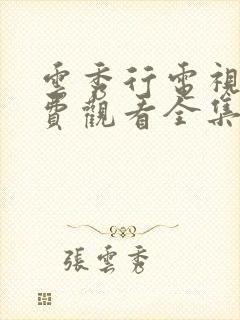 雲秀行電視
費觀看全集
張雲秀